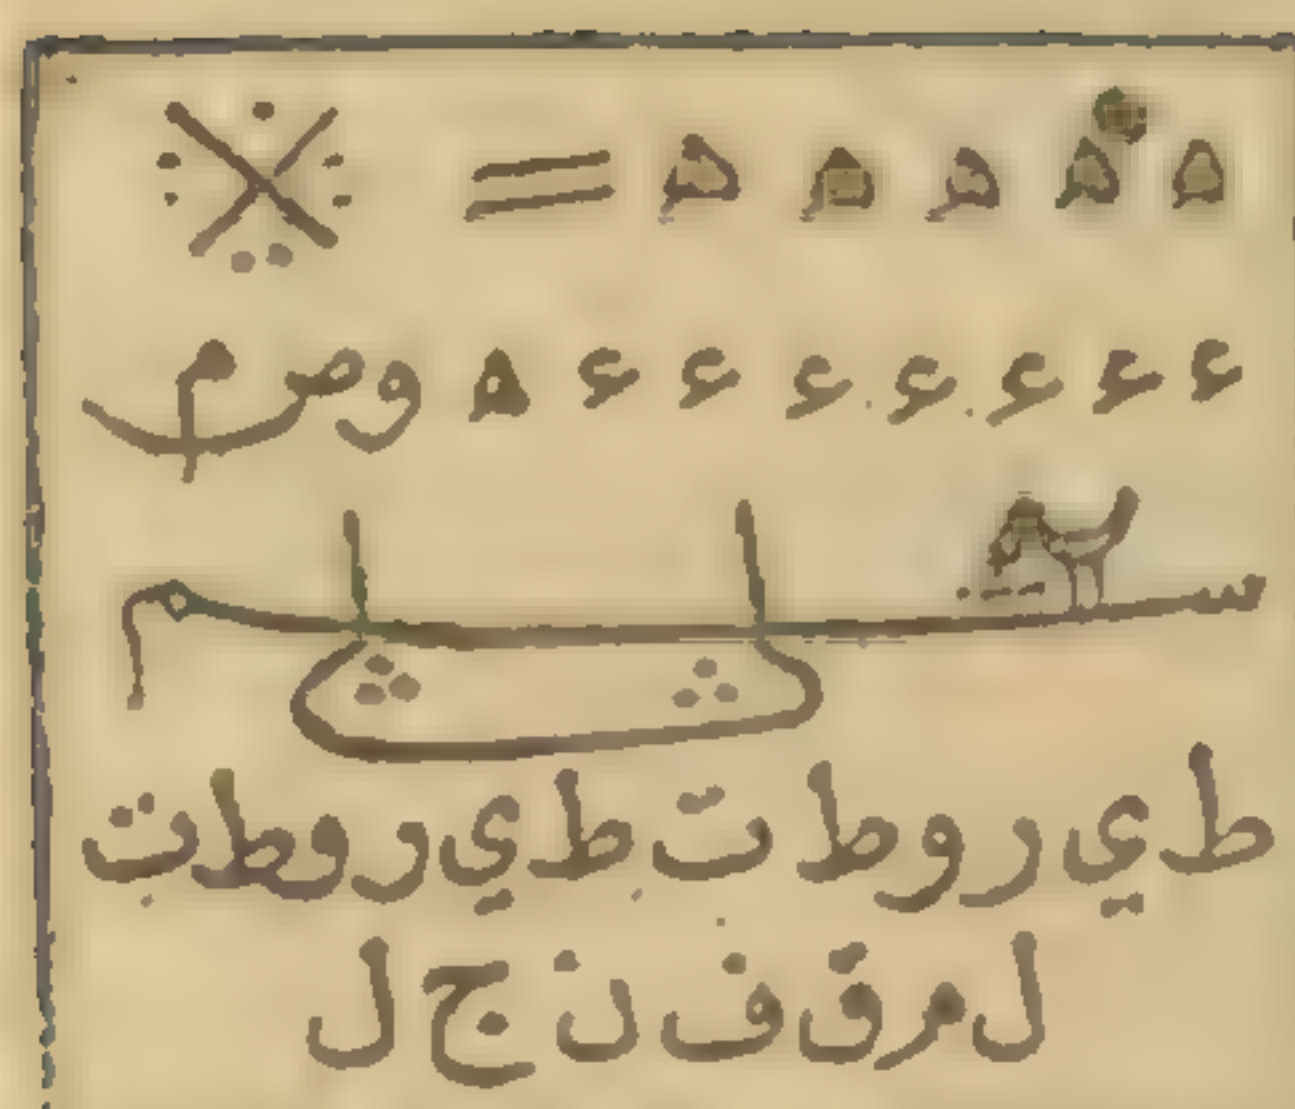 ه ه ه ه ه =
ء ء ء ء ء ء ء ه و ص م
ط ي ر و ط ت ط ي ر و ط ت
ل م ق ف ن ج ل